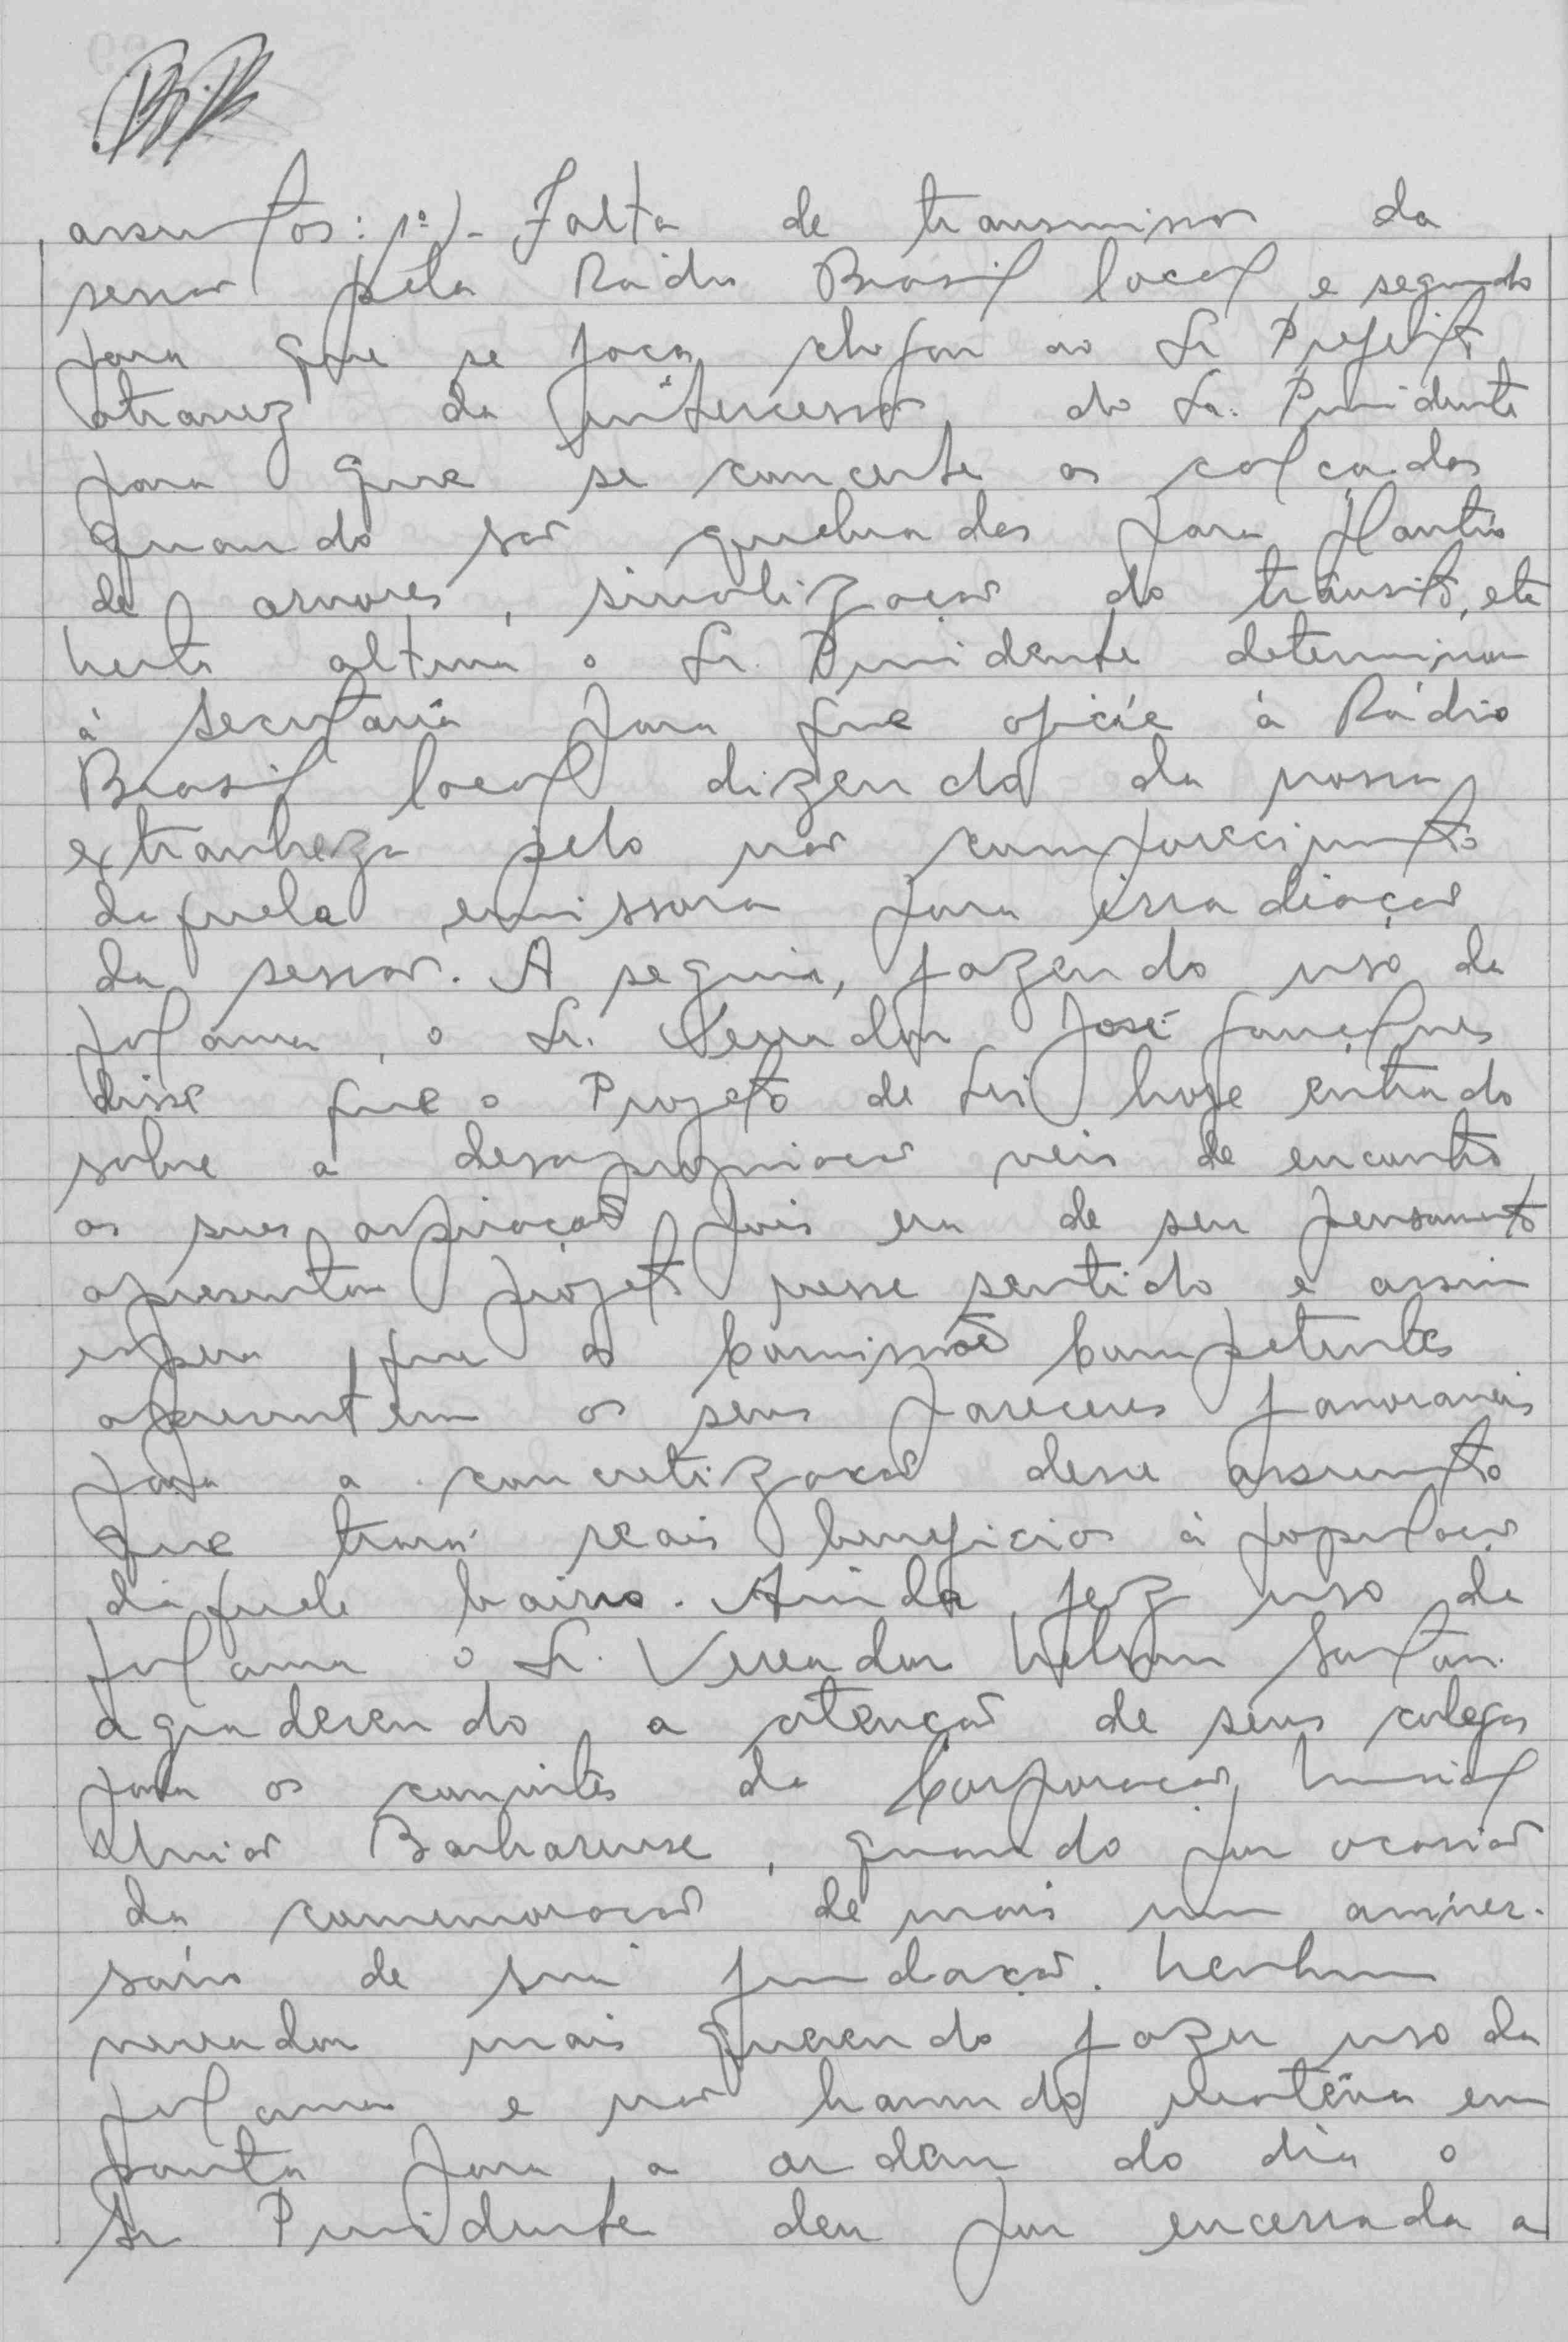 assuntos: 1º)- Falta de transmissão da
sessão pela Rádio Brasil local e segundo
para que se faça chegar ao Sr Prefeito
atravez da intercessão do Sr. Presidente
para que se concerte as calçadas
quando são quebradas para plantio
de arvores, sinalização do trânsito, etc
nesta altura o Sr. Presidente determinou
à secretaria para que oficie à Rádio
Brasil local dizendo da nossa
extranheza pelo não comparecimento
daquela emissora para irradiação
da sessão. A seguir, fazendo uso da
palavra, o Sr. Vereador José Gonçalves
disse que o Projeto de Lei hoje entrado
sobre a desapropriação veis de encontro
as suas aspirações pois era de seu pensamento
apresentar projeto nesse sentido e assim
espera que as Comissões Competentes
apresentem os seus pareceres favoraveis
para a concretização desse assunto
que trará reais beneficios à população
daquele bairro. Ainda fez uso da
palavra o Sr. Vereador Nelson
agradecendo a atenção de seus colegas
para os convites da Corporação Musical
União Barbarense, quando por ocasião
da comemoração de mais um aniver-
sário de sua fundação. Nenhum
vereador mais querendo fazer uso da
palavra e não havendo matéria em
pauta para a ordem do dia o
Sr Presidente deu por encerrada a